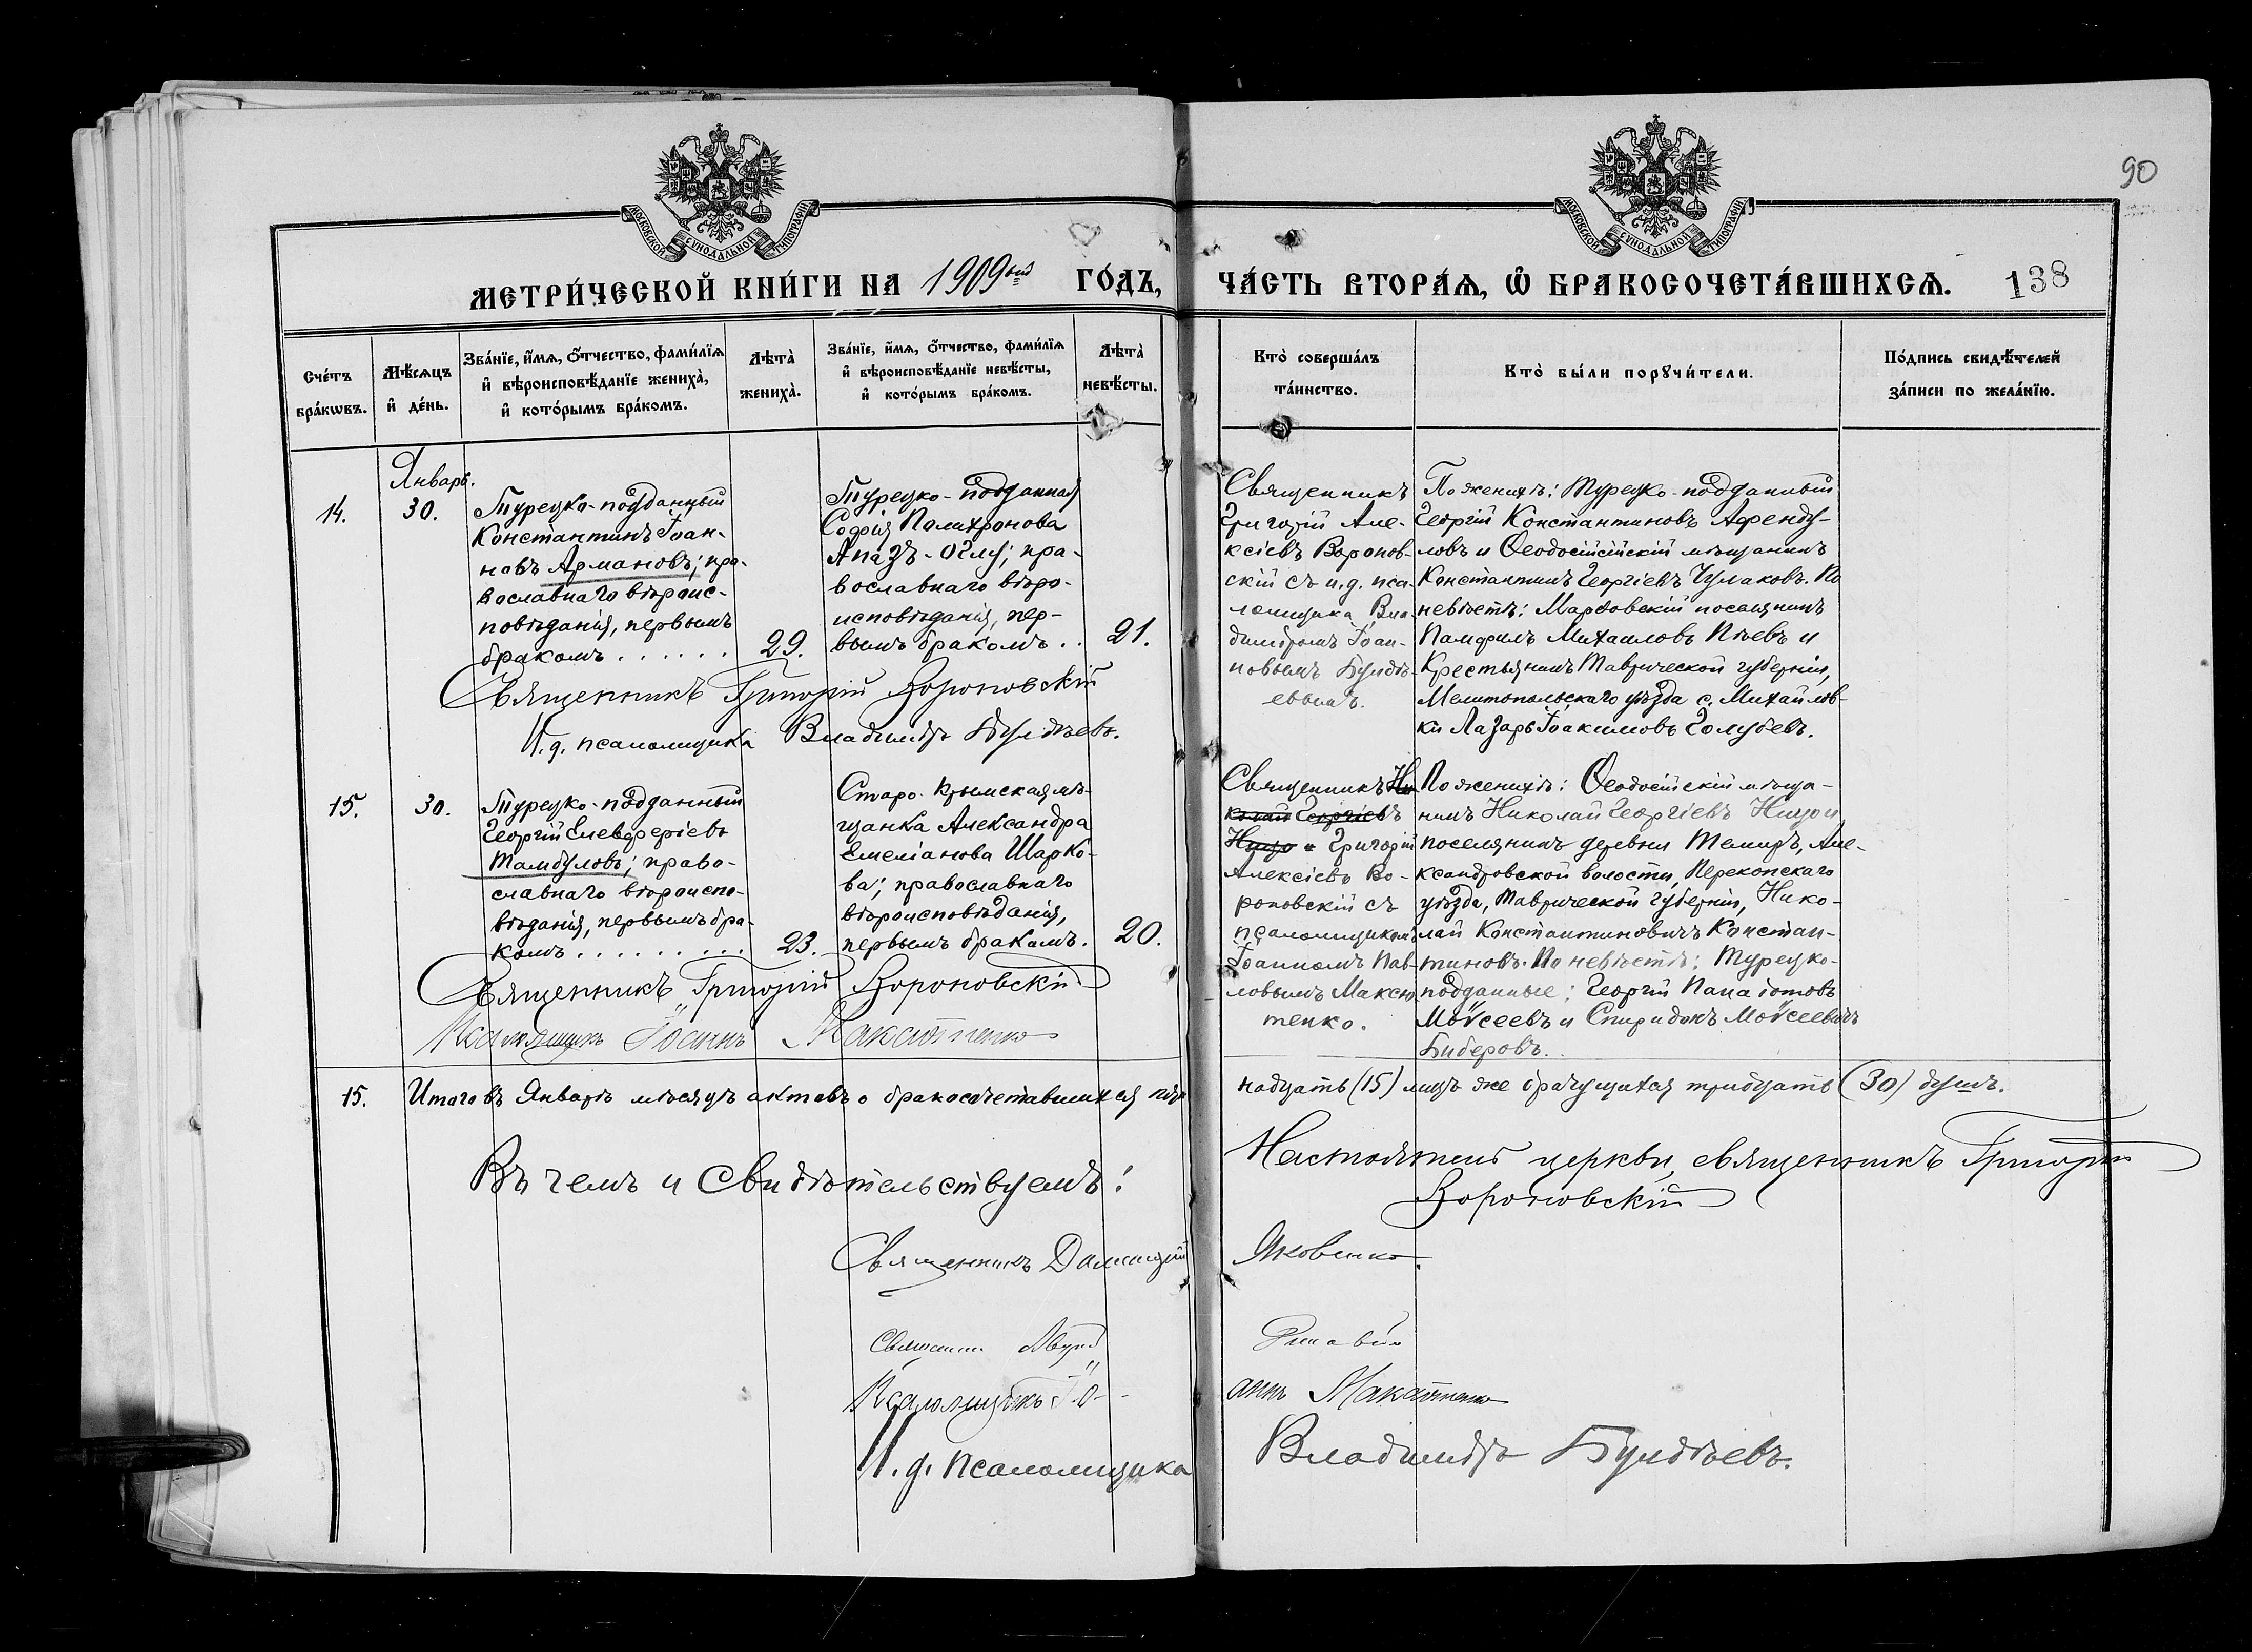 90
МОСКОВСКОЙ СУНОДАЛЬНОЙ ТИПОГРАФІИ
МОСКОВСКОЙ СУНОДАЛЬНОЙ ТИПОГРАФІИ
МЕТРИ́ЧЕСКОЙ КНИ́ГИ НА 1909ый ГО́ДЪ,
ЧА́СТЬ ВТОРА́Ѧ, Ѡ҆ БРАКОСОЧЕТА́ВШИХСѦ.
138
Сче́тъ
бра́кѡвъ.
Мѣ́сѧцъ
и҆ де́нь.
Зва́нїе, и҆́мѧ, ѻ҆́тчество, фами́лїѧ
и҆ вѣроисповѣ́данїе жениха̀,
и҆ кото́рымъ бра́комъ.
Лѣта̀
жениха̀.
Зва́нїе, и҆́мѧ, ѻ҆́тчество, фами́лїѧ
и҆ вѣроисповѣ́данїе невѣ́сты,
и҆ кото́рымъ бра́комъ.
Лѣта̀
невѣ́сты.
Кто̀ соверша́лъ
та́инство.
Кто̀ бы́ли порꙋчи́тели.
По́дпись свидѣ́телей
за́писи по жела́нїю.
14.
Январь.
30.
Турецко-подданный
Константинъ Іоан-
новъ Армановъ; пра-
вославнаго вѣроис-
повѣданія, первымъ
бракомъ . . . . . .
29.
Турецко-подданная
Софія Полихронова
Апазъ-Оглу; пра-
вославнаго вѣро-
исповѣданія, пер-
вымъ бракомъ . .
21.
Священникъ Григорій Вороновскій
И. д. псаломщика Владиміръ Булдѣевъ.
Священникъ
Григорій Але-
ксіевъ Воронов-
скій съ и. д. пса-
ломщика Вла-
диміромъ Іоан-
новымъ Булдѣ-
евымъ.
По женихѣ: Турецко-подданный
Георгій Константиновъ Афенду-
ловъ и Ѳеодосійсійскій мѣщанинъ
Константинъ Георгіевъ Чулаковъ. По
невѣстѣ: Марѳовскій поселянинъ
Памфилъ Михаиловъ Пѣевъ и
Крестьянинъ Таврической губерніи,
Мелитопольскаго уѣзда с. Михайлов-
ки Лазарь Іоакимовъ Голубевъ.
15.
30.
Турецко-подданный
Георгій Елевферіевъ
Тамбуловъ; право-
славнаго вѣроиспо-
вѣданія, первымъ бра-
комъ . . . . . . . . .
23.
Старо-Крымская мѣ-
щанка Александра
Емеліанова Шарко-
ва; православнаго
вѣроисповѣданія,
первымъ бракомъ.
20.
Священникъ Григорій Вороновскій
Псаломщикъ Іоаннъ
Священникъ Ни
колай Георгіевъ
и Григорій
Алексіевъ Во-
роновскій съ
псаломщикомъ
Іоанномъ Пав-
ловымъ Максю
тенко.
По женихѣ: Ѳеодосійскій мѣща-
нинъ Николай Георгіевъ
поселянинъ деревни Темиръ, Але-
ксандровской волости, Перекопскаго
уѣзда, Таврической губерніи, Нико-
лай Константиновичъ Констан-
тиновъ. По невѣстѣ: Турецко-
подданные: Георгій Панаіотовъ
Моѵсеевъ и Спиридонъ Моѵсеевичъ
Биберовъ.
15.
Итого въ Январѣ мѣсяцѣ актовъ о бракосочетавшихся пят
надцать (15) лицъ же брачущихся тридцать (30) душъ.
Въ чемъ и свидѣтельствуемъ:
Настоятель церкви, священникъ Григорій
Вороновскій
Священникъ
Яковенко.
Псаломщикъ Іо-
аннъ
И. д. псаломщика
Владиміръ Булдѣевъ.